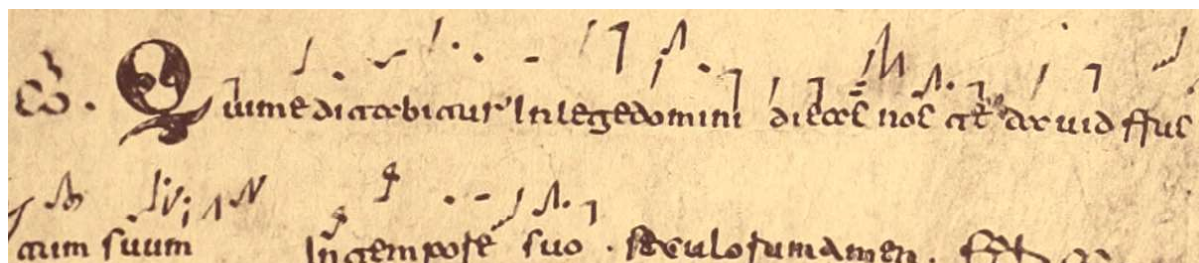 Co . Qui meditabitur In lege domini die ac noc te dauid fruc
tum suum In tempore suo . seculorum amen .